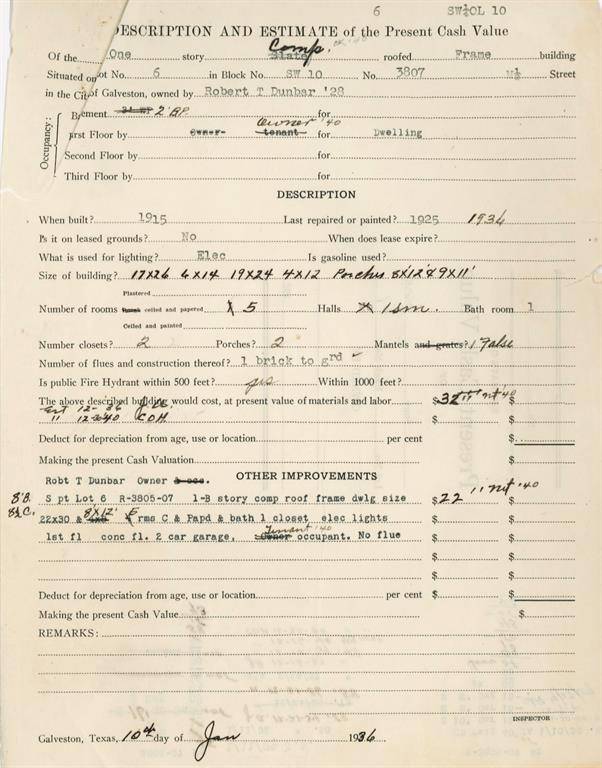 6 SW¼OL 10
DESCRIPTION AND ESTIMATE of the Present Cash Value
Comp. '40
Of the One story Slate roofed Frame building
Situated on Lot No. 6 in Block No. SW 10 No. 3807 M½ Street
in the City of Galveston, owned by Robert T Dunbar '28
Occupancy:
Basement 2' BP. for
Owner '40
First Floor by Owner tenant for Dwelling
Second Floor by for
Third Floor by for
DESCRIPTION
When built? 1915 Last repaired or painted? 1925 1936
Is it on leased grounds? No When does lease expire?
What is used for lighting? Elec Is gasoline used?
Size of building? 17X26 6X14 19X24 4X12 Porches 8'X12' & 9X11'
Plastered
Number of rooms ceiled and papered 5 Halls 1 sm. Bath room 1
Ceiled and painted
Number closets? 2 Porches? 2 Mantels and grates? 1 False
Number of flues and construction thereof? 1 brick to grd
Is public Fire Hydrant within 500 feet? yes Within 1000 feet?
The above described building would cost, at present value of materials and labor $32 nt '40 $
Est 12-36
" 12-2-'40 C.D.H. $ $
Deduct for depreciation from age, use or location per cent $
Making the present Cash Valuation $
Robt T Dunbar Owner
OTHER IMPROVEMENTS
8'B. S pt Lot 6 R-3805-07 1-B story comp roof frame dwlg size $22 nt '40 $
8½ C. 22x30 & 8X12' 5 rms C & Papd & bath 1 closet elec lights $ $
Tenant '40
1st fl conc fl. 2 car garage, Owner occupant. No flue $ $
$ $
$ $
Deduct for depreciation from age, use or location per cent $ $
Making the present Cash Value $
REMARKS:
INSPECTOR
Galveston, Texas, 10th day of Jan 1936